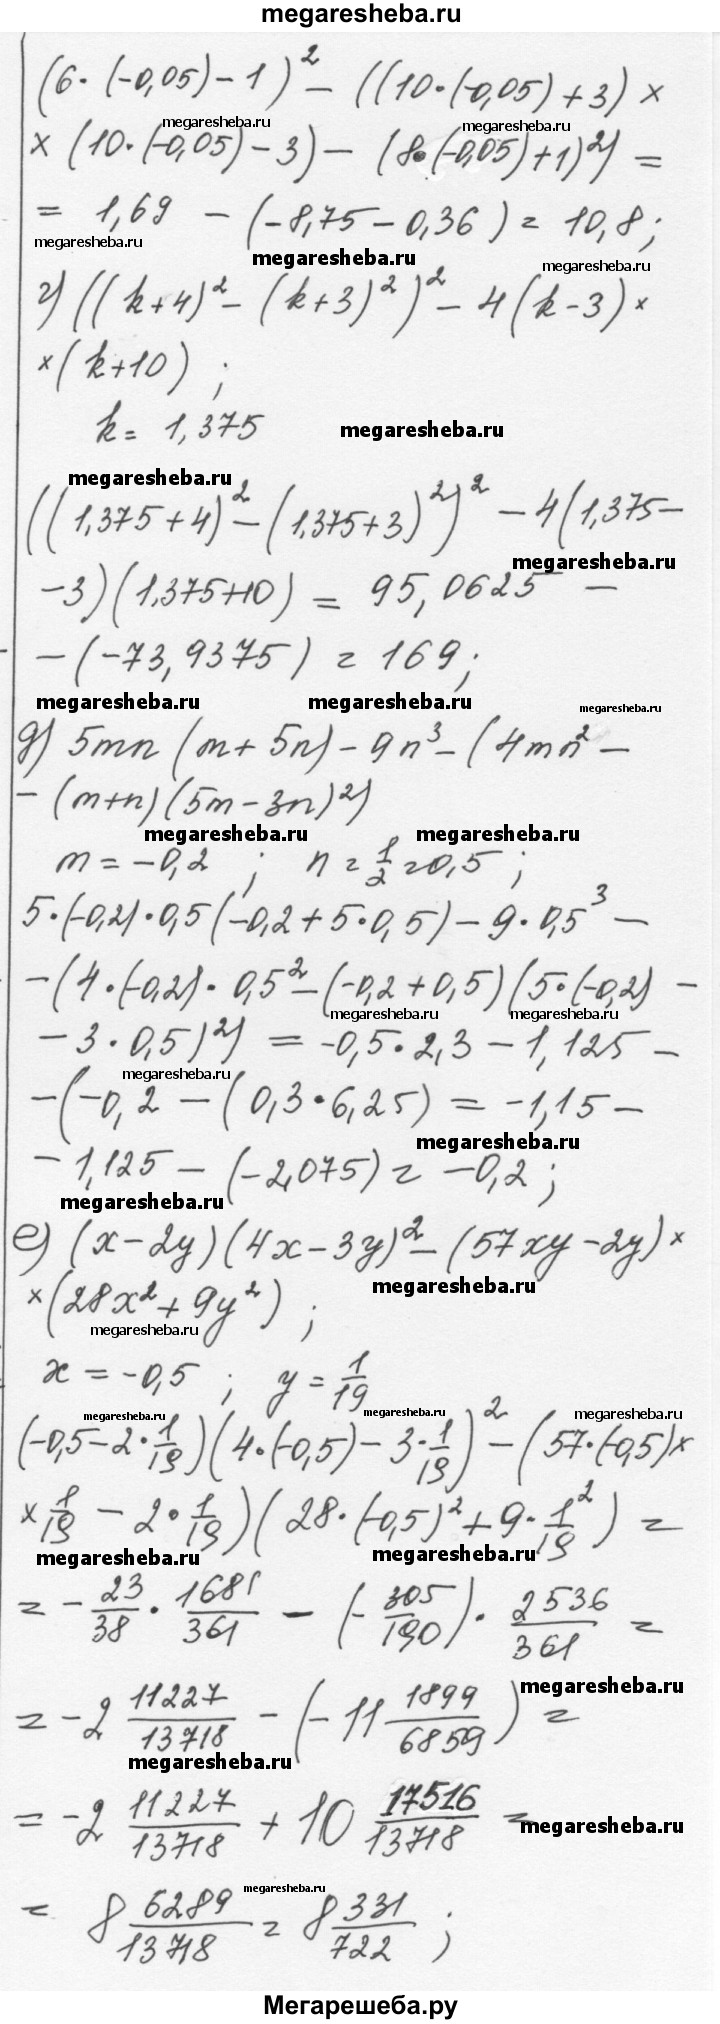 megaresheba.ru
(6·(-0,05)-1)² - ((10·(-0,05)+3) ×
megaresheba.ru megaresheba.ru
× (10·(-0,05)-3) - (8·(-0,05)+1)²) =
= 1,69 - (-8,75-0,36) = 10,8;
megaresheba.ru megaresheba.ru megaresheba.ru
г) ((k+4)² - (k+3)²)² - 4(k-3) ×
× (k+10) ;
k = 1,375 megaresheba.ru
megaresheba.ru
((1,375+4)² - (1,375+3)²)² - 4(1,375-
megaresheba.ru
-3)(1,375+10) = 95,0625 -
- (-73,9375) = 169;
megaresheba.ru megaresheba.ru megaresheba.ru
д) 5mn (m+5n) - 9n³ - (4mn² -
- (m+n)(5m-3n)²)
megaresheba.ru megaresheba.ru
m = -0,2 ; n = 1/2 = 0,5 ;
5·(-0,2)·0,5(-0,2+5·0,5) - 9·0,5³ -
- (4·(-0,2)·0,5² - (-0,2+0,5)(5·(-0,2) -
megaresheba.ru megaresheba.ru
- 3·0,5)²) = -0,5·2,3 - 1,125 -
megaresheba.ru
- (-0,2 - (0,3·6,25) = -1,15 -
megaresheba.ru
- 1,125 - (-2,075) = -0,2 ;
megaresheba.ru
е) (x-2y)(4x-3y)² - (57xy-2y) ×
megaresheba.ru
× (28x²+9y²) ;
megaresheba.ru
x = -0,5 ; y = 1/19
megaresheba.ru megaresheba.ru megaresheba.ru
(-0,5-2·1/19)(4·(-0,5)-3·1/19)² - (57·(-0,5) ×
× 1/19 - 2·1/19)(28·(-0,5)²+9·1/19²) =
megaresheba.ru megaresheba.ru
= - 23/38 · 1681/361 - (- 305/190) · 2536/361 =
megaresheba.ru
= -2 11227/13718 - (-11 1899/6859) =
megaresheba.ru
= -2 11227/13718 + 10 17516/13718 =
megaresheba.ru
megaresheba.ru
= 8 6289/13718 = 8 331/722 ;
Мегарешеба.ру